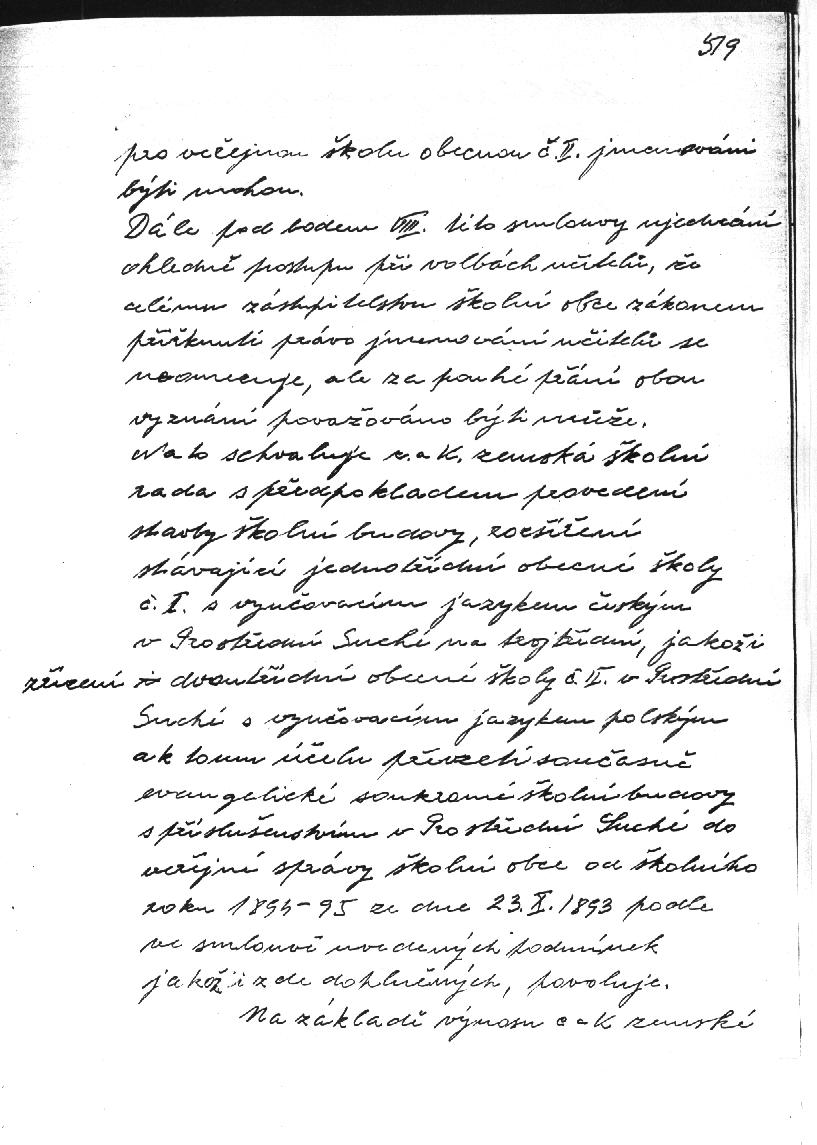 519
pro veřejnou školu obecnou č. II. jmenováni
býti mohou.
Dále pod bodem VIII. této smlouvy ujednání
ohledně postupu při volbách učitelů, že
celému zástupitelstvu školní obce zákonem
přiřknuté právo jmenování učitelů se
neomezuje, ale za pouhé přání obou
vyznání považováno býti může.
Na to schvaluje c. a K. zemská školní
rada s předpokladem provedení
stavby školní budovy, rozšíření
stávající jednotřídní obecné školy
č. I. s vyučovacím jazykem českým
v Prostřední Suché na trojtřídní, jakož i
zřízení dvoutřídní obecné školy č. II. v Prostřední
Suché s vyučovacím jazykem polským
a k tomu účelu převzetí současně
evangelické soukromé školní budovy
s příslušenstvím v Prostřední Suché do
veřejné správy školní obce od školního
roku 1894-95 ze dne 23. X. 1893 podle
ve smlouvě uvedených podmínek
jakož i zde dohlučných, povoluje.
Na základě výnosu c a K zemské